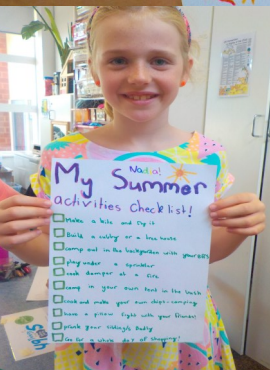 Nadia!
My Summer
activities Checklist!
Make a kite and fly it
Build a cubby or a tree house
camp out in the backyarden with your BFFs
play under a sprinkler
cook damper at a fire
camp in your own tent in the
cook and make your own
have a pillow fight with your friends!
prank your sibling/s Dadly
Go for a whole day of shopping!